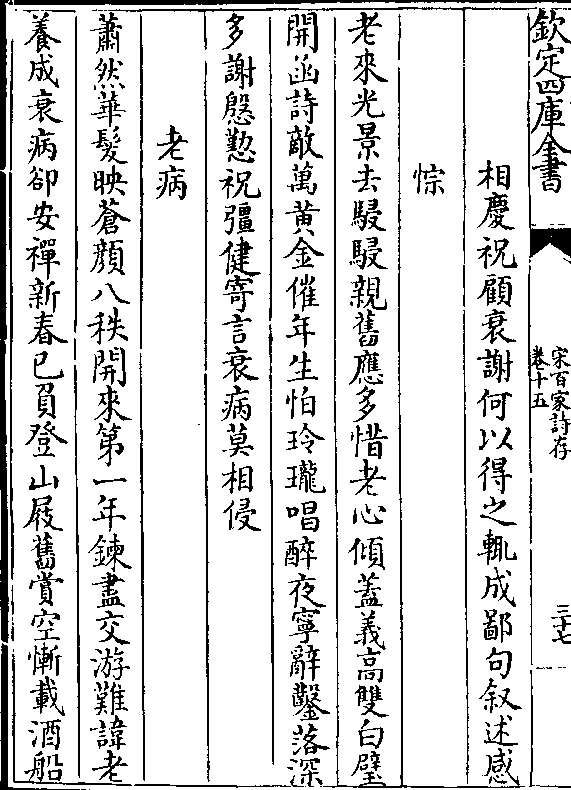 欽定四庫全書
宋百家詩存
卷十五
三十七
相慶祝顧衰謝何以得之輒成鄙句叙述感
悰
老來光景去駸駸親舊應多惜老心傾蓋義高雙白璧
開函詩敵萬黄金催年生怕玲瓏唱醉夜寧辭鑿落深
多謝慇懃祝彊健寄言衰病莫相侵
老病
蕭然華髮映蒼顔八秩開來第一年鍊盡交游難諱老
養成衰病卻安禪新春已負登山屐舊賞空慚載酒船